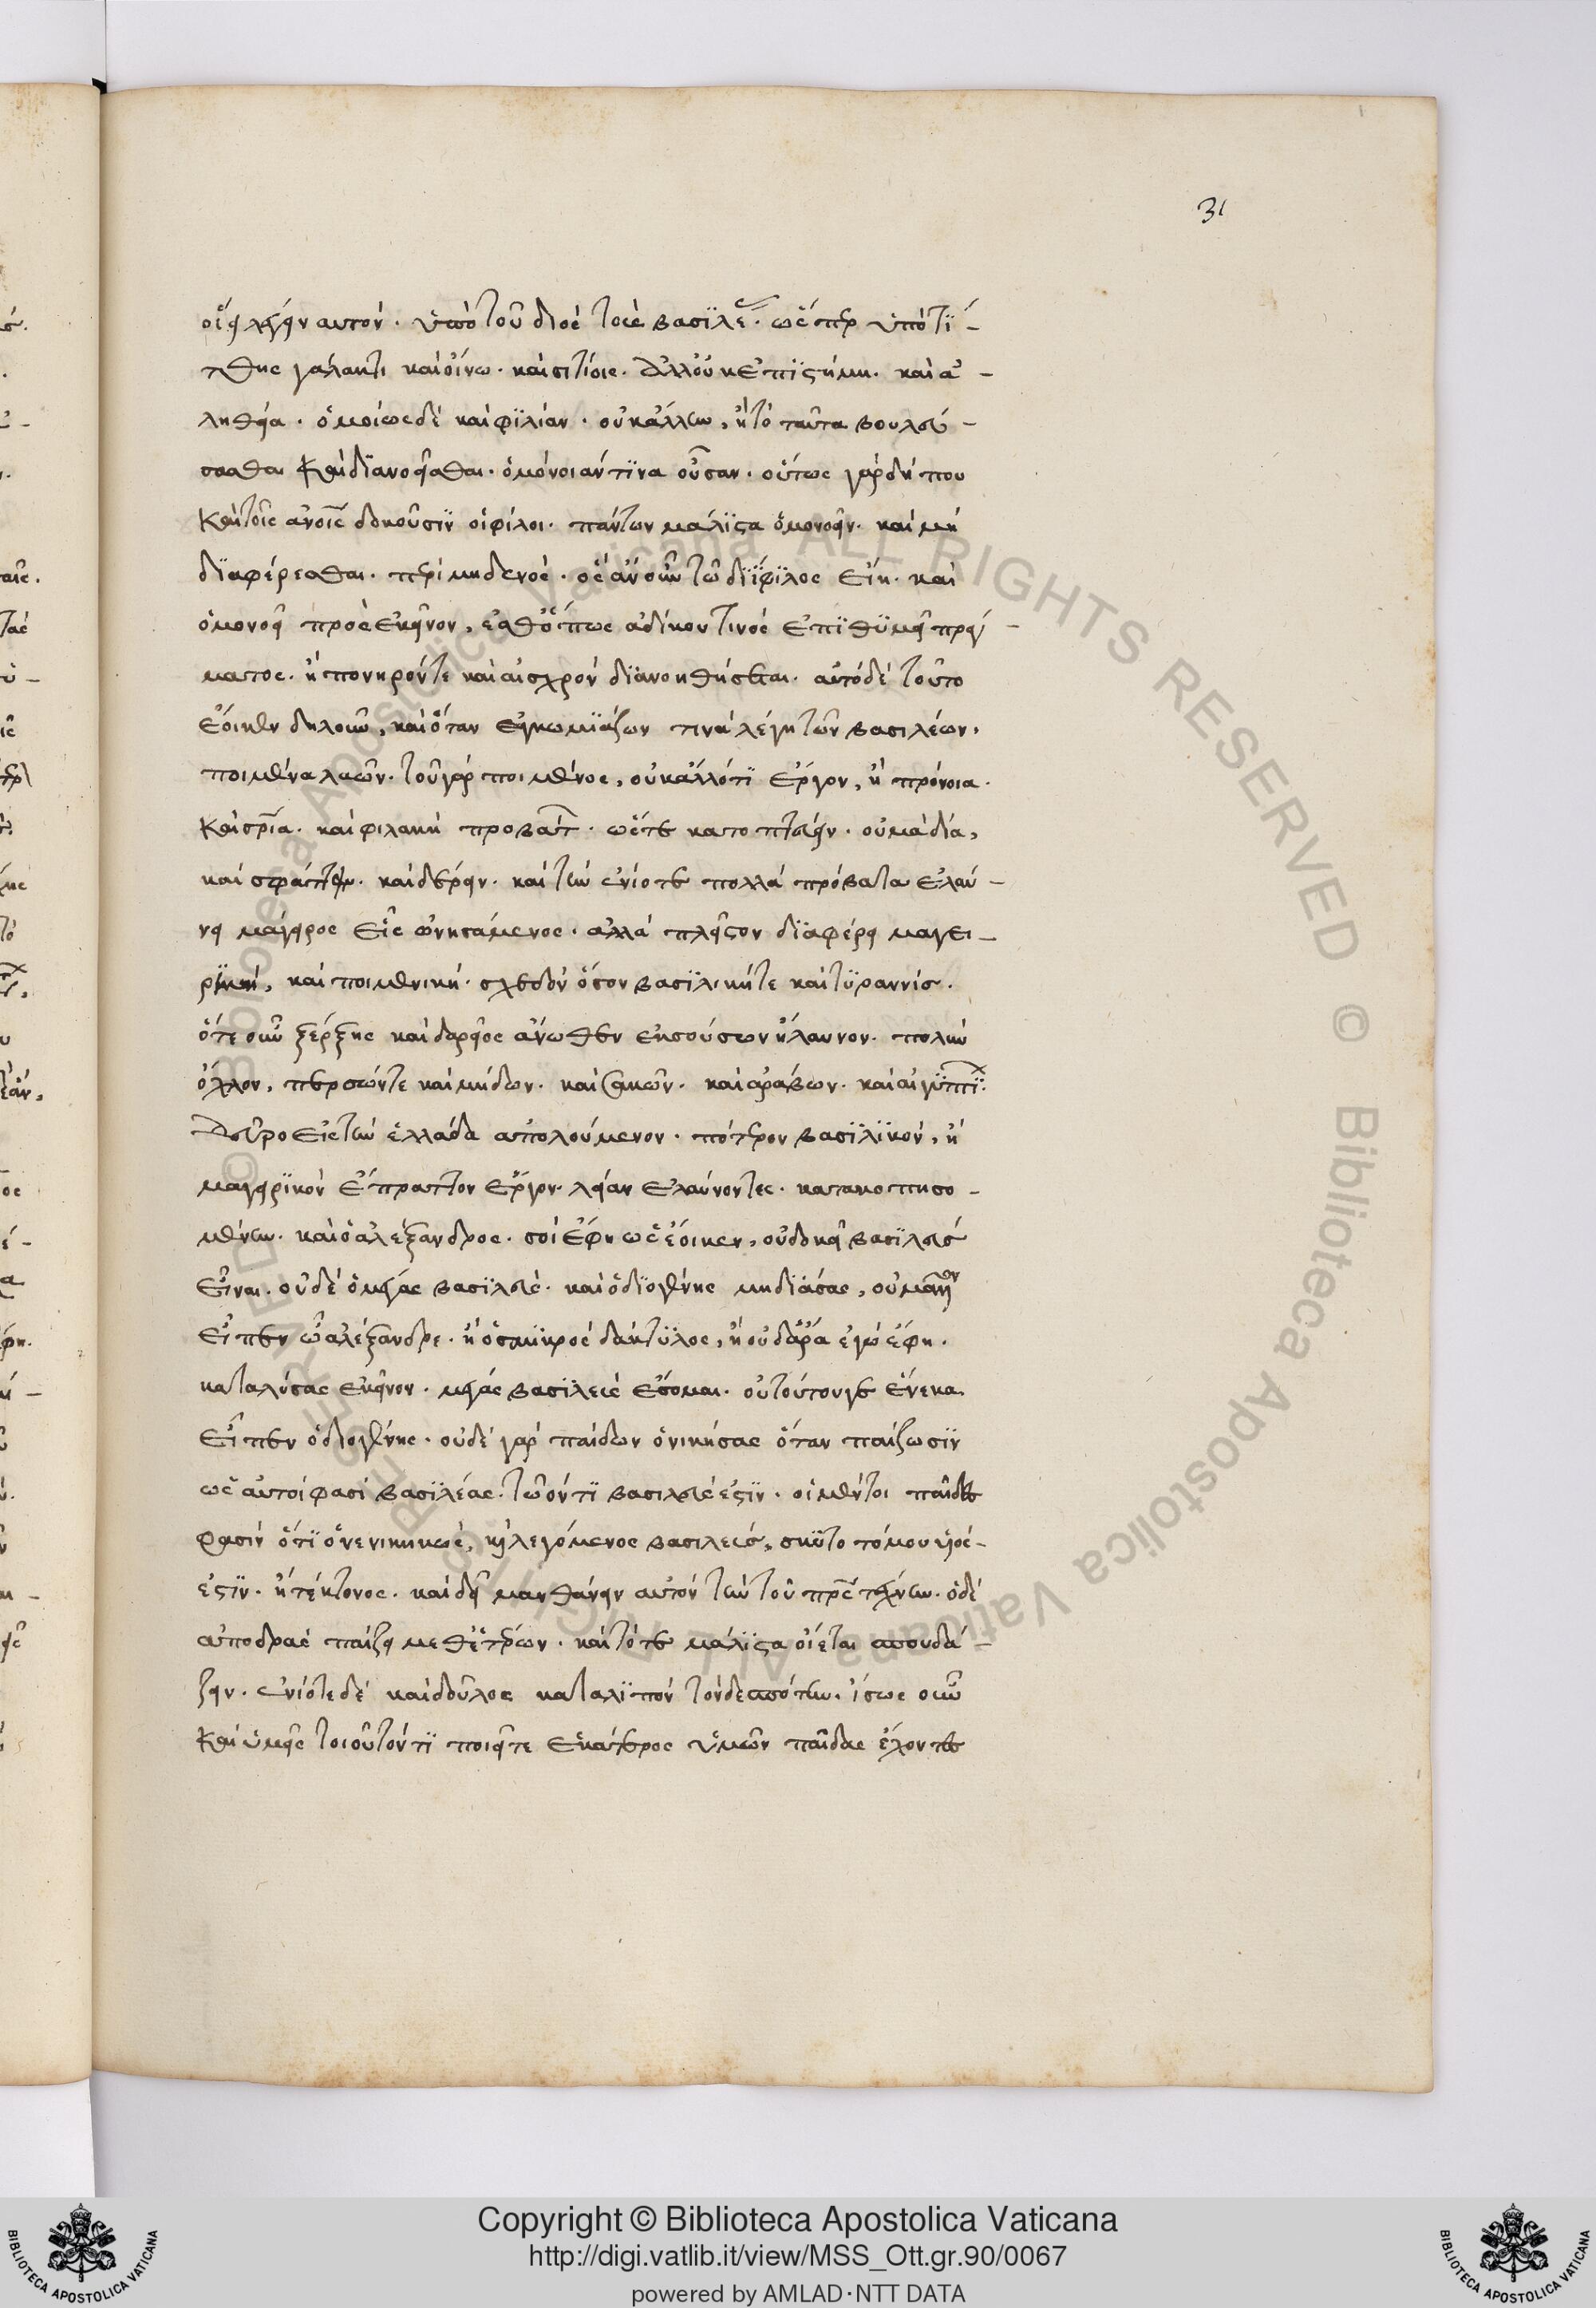 31
οἴει λέγειν αὐτὸν. ὑπὸ τοῦ διὸς τοὺς βασιλέας. ὥσπερ ὑπὸ τί-
τθης γάλακτι καὶ οἴνω. καὶ σιτίοις. ἀλλ' οὐκ ἐπιστήμη. καὶ ἀ-
ληθεία. ὁμοίως δὲ καὶ φιλίαν. οὐκ ἄλλην, ἢ τὸ ταῦτα βουλεύ-
σασθαι καὶ διανοεῖσθαι. ὁμόνοιάν τινα οὖσαν. οὕτως γὰρ δή που
καὶ τοῖς ἀνοις δοκοῦσιν οἱ φίλοι. πάντων μάλιστα ὁμονοεῖν. καὶ μὴ
διαφέρεσθαι. περὶ μηδενός. ὃς ἂν οὖν τῶ διῒ φίλος εἴη. καὶ
ὁμονοεῖ πρὸς ἐκεῖνον, ἔσθ' ὅπως ἀδίκου τινὸς ἐπιθυμεῖ πράγ-
ματος. ἢ πονηρόν τε καὶ αἰσχρὸν διανοηθήσεται. αὐτὸ δὲ τοῦτο
ἔοικεν δηλοῦν, καὶ ὅταν ἐγκωμιάζων τινὰ λέγη τῶν βασιλέων.
ποιμένα λαῶν. τοῦ γὰρ ποιμένος, οὐκ ἄλλό τι ἔργον, ἢ πρόνοια.
καὶ σρία. καὶ φιλακὴ προβάτ. ὥστε κατοπτσειν. οὐ μὰ δία,
καὶ σφάττειν. καὶ δέρειν. καὶ τὴν ἐνίοτε πολλὰ πρόβατα ἐλαύ-
νει μάγειρος εἷς ὠνησάμενος. ἀλλὰ πλεῖστον διαφέρει μαγει-
ρικὴ, καὶ ποιμενική. σχεδὸν ὅσον βασιλική τε καὶ τυραννίς.
ὅτε οὖν ξέρξης καὶ δαρεῖος ἄνωθεν ἐκ σούσων ἤλαυνον. πολὺν
ὄχλον, περσῶν τε καὶ μήδων. καὶ σακῶν. καὶ ἀράβων. καὶ αἰγυπτι.
δεῦρο εἰς τὴν ἑλλάδα ἀπολούμενον. πότερον βασιλικὸν, ἢ
μαγειρικὸν ἔπραττον ἔργον. λείαν ἐλαύνοντες. κατακοπησο-
μένην. καὶ ὁ ἀλέξανδρος. σοὶ ἔφη ὡς ἔοικεν, οὐ δοκεῖ βασιλεὺς
εἶναι. οὐδὲ ὁ μέγας βασιλεύς. καὶ ὁ διογένης μηδιάσας, οὐ μᾶλλον
εἶπεν ὦ ἀλέξανδρε. ἢ ὁ σμικρὸς δάκτυλος, ἢ οὐδ' ἄρα ἐγὼ ἔφη.
καταλύσας ἐκεῖνον. μέγας βασιλεὺς ἔσομαι. οὐ τούτου γε ἕνεκα
εἶπεν ὁ διογένης. οὐδὲ γὰρ παίδων ὁ νικήσας ὅταν παίζωσιν
ὡς αὐτοί φασι βασιλέας. τῶ ὄντι βασιλεύς ἐστιν. οἱ μέντοι παῖδες
φασὶν ὅτι ὁ νενικηκὼς, καὶ λεγόμενος βασιλεὺς, σκυτοτόμου υἱός-
ἐστιν. ἢ τέκτονος. καὶ δεῖ μανθάνειν αὐτὸν τὴν τοῦ πρς τέχνην. ὁ δὲ
ἀποδρὰς παίζει μεθ' ἑτέρων. καὶ τότε μάλιστα οἴεται σπουδά-
ζειν. ἐνίοτε δὲ καὶ δοῦλος καταλιπὸν τὸν δεσπότην. ἴσως οὖν
καὶ ὑμεῖς τοιοῦτόν τι ποιεῖτε ἑκάτερος ὑμῶν παῖδας ἔχοντες
Copyright © Biblioteca Apostolica Vaticana
http://digi.vatlib.it/view/MSS_Ott.gr.90/0067
powered by AMLAD·NTT DATA